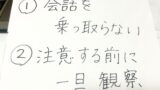 ① 会話を
乗っ取らない
② 注意する前に
一旦 観察